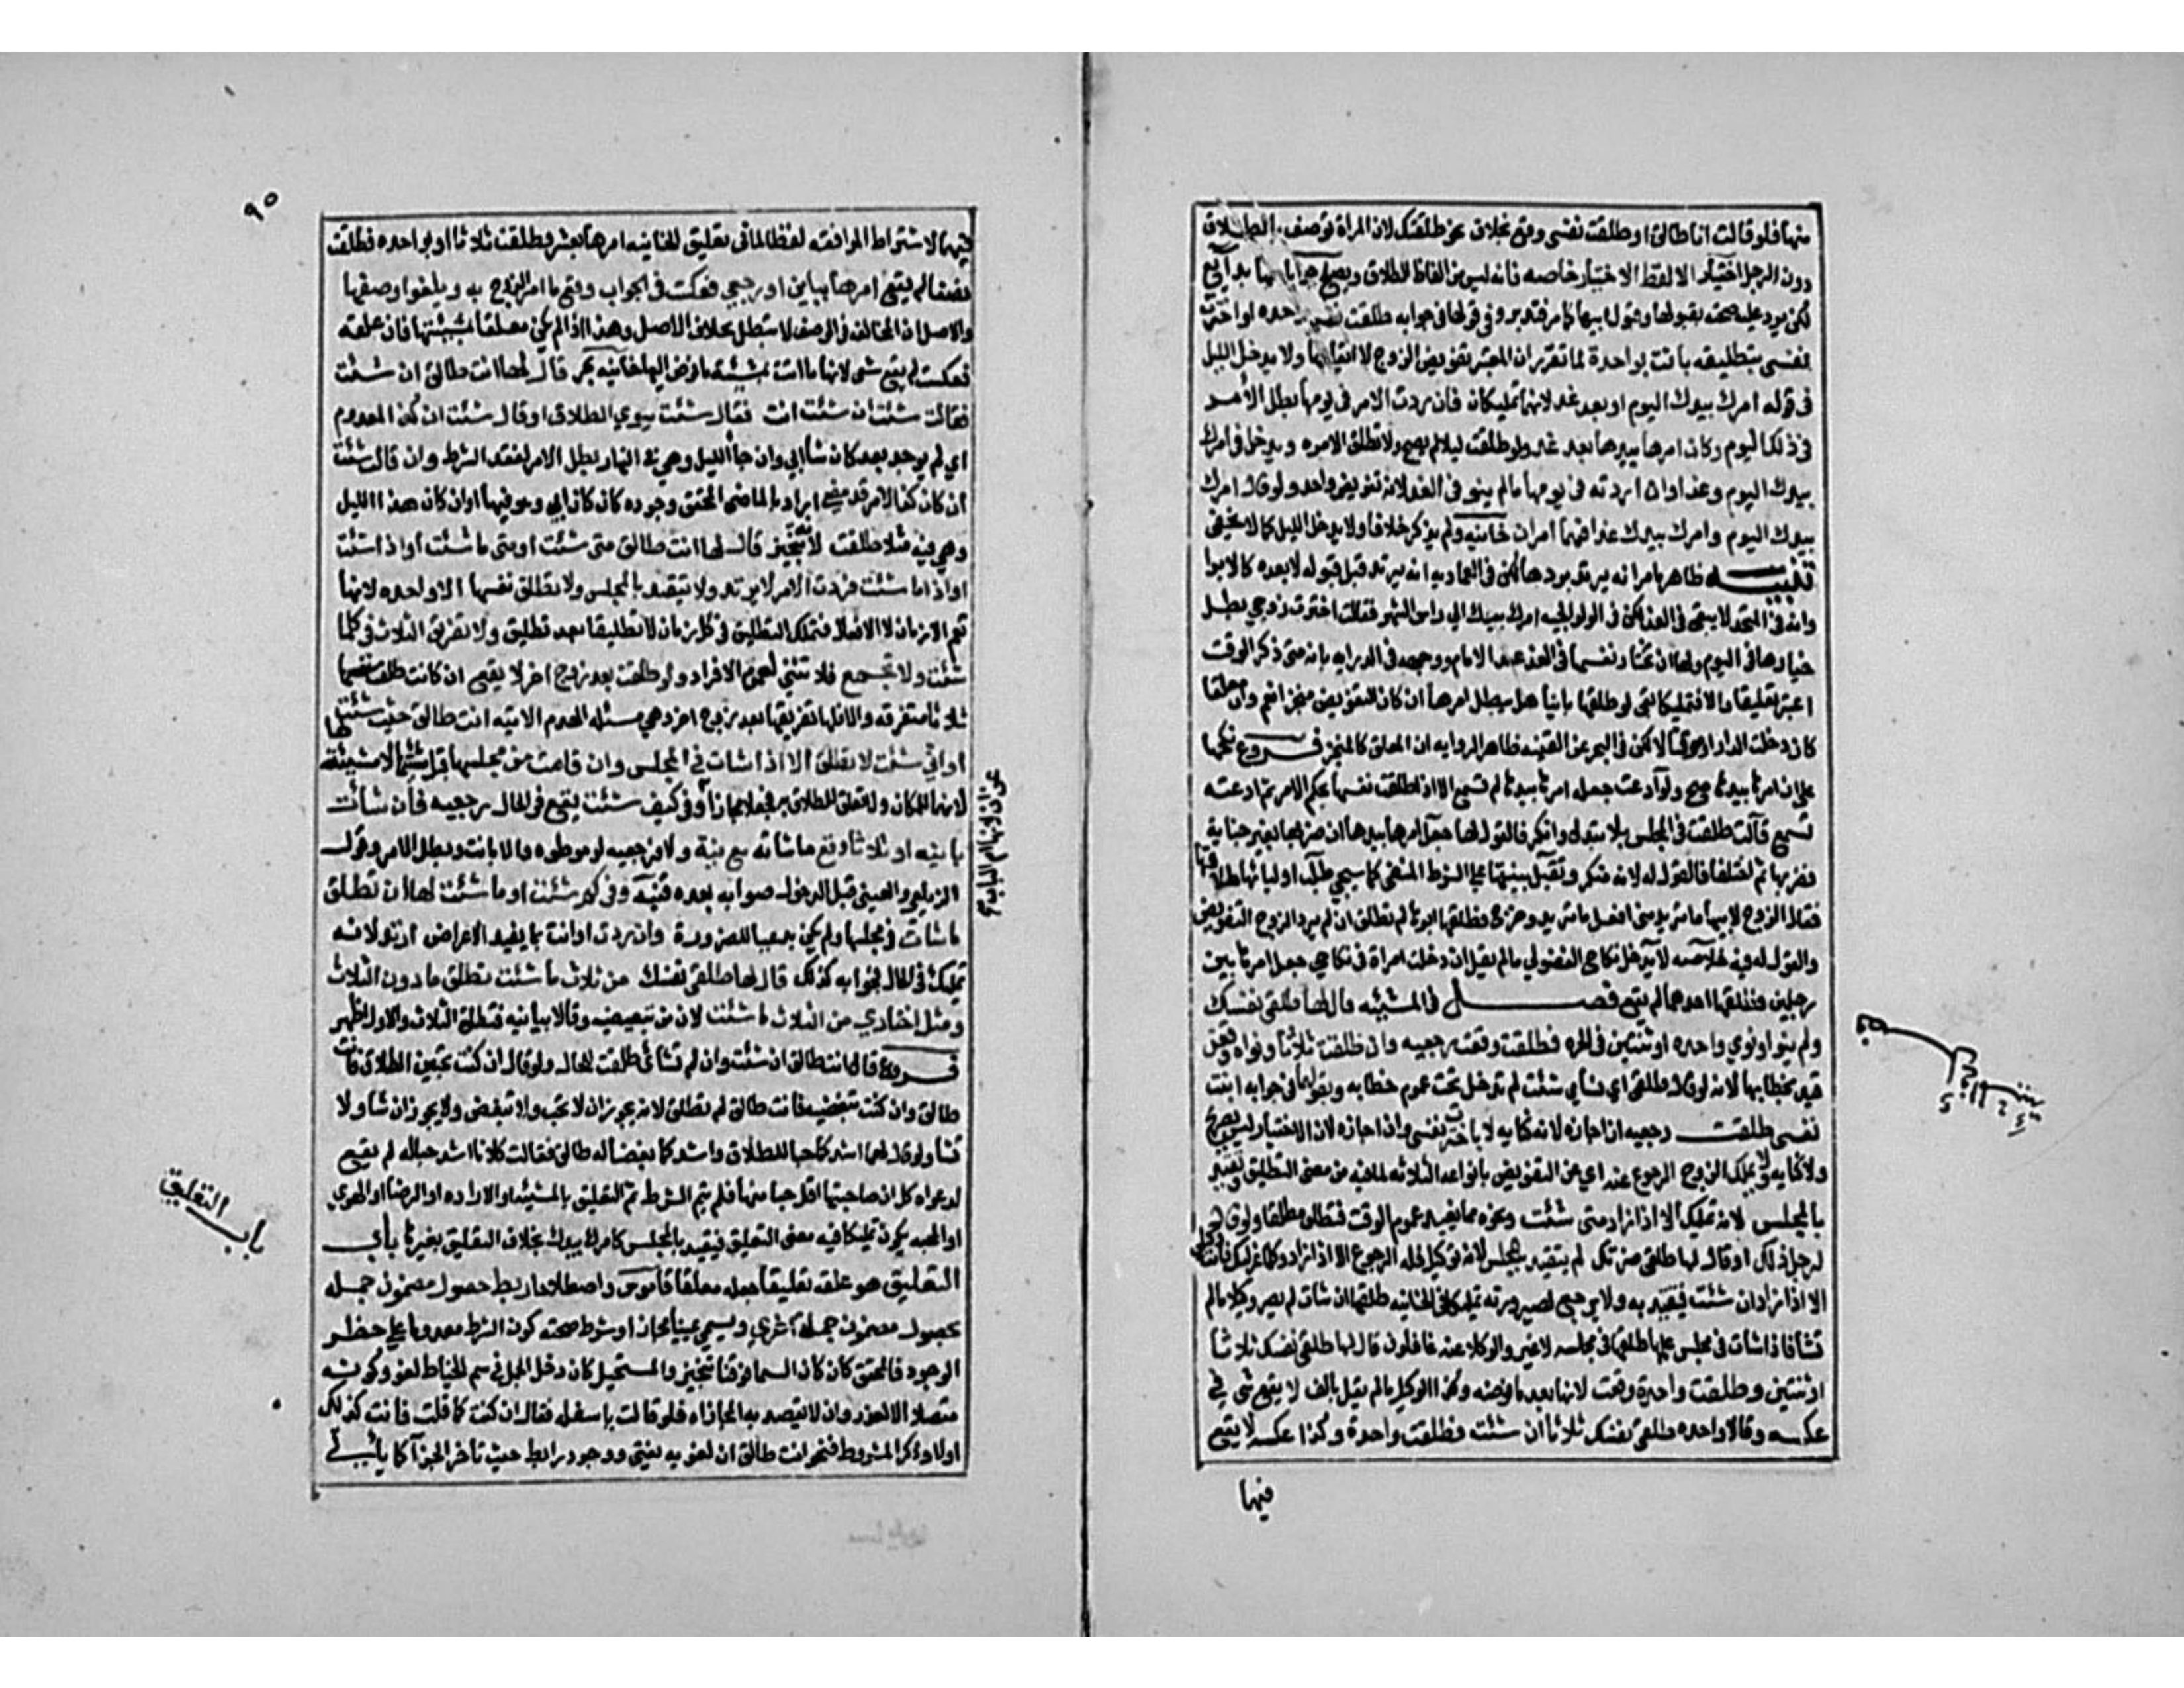 منها فلو قالت انا طالق او طلقت نفسي وقع بخلاف نحو طلقتك لان المراة توصف بالطلاق
دون الرجل اختيار الا لفظ الاختيار خاصه فانه ليس من الفاظ الطلاق ويصلح جوابا
لكن يرد عليه صحته بقبولها وبقول ابيها كما مر فتدبر وفي قولها في جوابه طلقت نفسي واحده او اخترت
نفسي بتطليقه بانت بواحدة لما تقرر ان المعتبر تفويض الزوج لا ايقاعها ولا يدخل الليل
في قوله امرك بيدك اليوم او بعد غد لانهما تمليكان فان ردت الامر في يومها بطل الامر
في ذلك اليوم وكان امرها بيدها بعد غد ولو طلقت ليلا لم يصح ولا تطلق الا مره ويدخل في امرك
بيدك اليوم وغدا وان ردته في يومها لم يبق في الغد لانه تفويض واحد ولو قال امرك
بيدك اليوم وامرك بيدك غدا فهما امران خانيه ولم يذكر خلافا ولا يدخل الليل كما لا يخفى
تنبيه ظاهر ما مر انه يرتد بردها لكن في العماديه انه يرتد قبل قبوله لا بعده كالابرا
وانه في المتحد لا يبقى في الغد لكن في الولوالجيه امرك بيدك الي راس الشهر فقالت اخترت زوجي بطل
خيارها في اليوم ولها ان تختار نفسها في الغد عند الامام ووجهه في الدرايه بانه متى ذكر الوقت
اعتبر تعليقا والا فتمليكا بقي لو طلقها باينا هل يبطل امرها ان كان التفويض منجزا نعم وان معلقا
كان دخلت الدار او موقتا لا لكن في البحر عن القنيه ظاهر الروايه ان المعلق كالمنجز فروع نكحها
على ان امرها بيدها صح ولو ادعت جعله امرها بيدها لم تسمع الا اذا طلقت نفسها بحكم الامر ثم ادعته
تسمع قالت طلقت في المجلس بلا تبدل وانكر فالقول لها جعل امرها بيدها ان ضربها بغير جناية
فضربها ثم اختلفا فالقول له لانه منكر وتقبل بينتها على الشرط المنفي كما سيجي طلب اولياوها طلاقها
فقال الزوج لابيها ما تريد مني افعل ما تريد وخرج فطلقها ابوها لم تطلق ان لم يرد الزوج التفويض
والقول له فيه خلاصه لا يدخل نكاح الفضولي ما لم يقل ان دخلت امراة في نكاحي جعل امرها بين
رجلين فطلقها احدهما لم يقع فصل في المشيئه قال لها طلقي نفسك
ولم ينو او نوى واحده او ثنتين في الحره فطلقت وقعت رجعيه وان طلقت ثلاثا ونواه وقعن
قيد بخطابها لانه لو قال طلقي اي نسائي شئت لم تدخل تحت عموم خطابه وبقولها في جوابه ابنت
نفسي طلقت رجعيه ان اجازه لانه كنايه لا باخترت نفسي وان اجازه لان الاختيار ليس بصريح
ولا كنايه ولا يملك الزوج الرجوع عنه اي عن التفويض بانواعه الثلاثه لما فيه من معنى التعليق وتقيد
بالمجلس لانه تمليك الا اذا زاد متى شئت ونحوه مما يفيد عموم الوقت فتطلق مطلقا ولو قال
لرجل ذلك او قال لها طلقي ضرتك لم يتقيد بالمجلس لانه توكيل فله الرجوع الا اذا زاد وكلما عزلتك فانت وكيل
الا اذا زاد ان شئت فيتقيد به ولا يرجع لصيرورته تمليكا في الخانيه طلقها ان شاءت لم يصر وكيلا ما لم
تشا فاذا شات في مجلس علمها طلقها في مجلسه لا غير والوكلا عنه غافلون قال لها طلقي نفسك ثلاثا
او ثنتين وطلقت واحدة وقعت لانها بعض ما فوضه وكذا الوكيل ما لم يقل بالف لا يقع شي في
عكسه وقالا واحده طلقي نفسك ثلاثا ان شئت فطلقت واحدة وكذا عكسه لا يقع
فيها
٩٥
فيهما لاشتراط الموافقه لفظا لما في تعليق الخانيه امرها بعشر فطلقت ثلاثا او بواحده فطلقت
نصفا لم يقع امرها بباين او رجعي فعكست في الجواب وقع ما امر الزوج به ويلغوا وصفها
والاصل ان المخالفه في الوصف لا تبطل بخلاف الاصل وهذا اذا لم يكن معلقا بمشيئتها فان علقه
فعكست لم يقع شي لانها ما اتت بمشيئة ما فوض اليها خانيه بحر قال لها انت طالق ان شئت
فقالت شئت ان شئت انت فقال شئت ينوي الطلاق او قال شئت ان كذا لمعدوم
اي لم يوجد بعد كان شا ابي وان جا الليل وهي في النهار بطل الامر لفقد الشرط وان قالت شئت
ان كان كذا لامر قد مضى اراد بالماضي المحقق وجوده كان كان ابي وهو فيها او ان كان هذا الليل
وهي فيه مثلا طلقت لانه تنجيز قال لها انت طالق متى شئت او متى ما شئت او اذا شئت
او اذا ما شئت فردت الامر لا يرتد ولا يتقيد بالمجلس ولا تطلق نفسها الا واحده لانها
تعم الازمان لا الافعال فتملك التطليق في كل زمان لا تطليقا بعد تطليق ولها تفريق الثلاث في كلما
شئت ولا تجمع فلا تثني لعموم الافراد ولو طلقت بعد زوج اخر لا يقع ان كانت طلقت نفسها
ثلاثا متفرقه والا فلها تفريقها بعد زوج اخر وهي مسئله الهدم الاتيه انت طالق حيث شئت
او اين شئت لا تطلق الا اذا شات في المجلس وان قامت من مجلسها قبل مشيئتها لا مشيئة لها
لانهما للمكان ولا تعلق للطلاق به فجعلا مجازا وفي كيف شئت يقع في الحال رجعيه فان شات
باينه او ثلاثا وقع ما شاته مع نية والا فرجعيه لو موطوه والا بانت وبطل الامر وقول
الزيلعي والعيني قبل الدخول صوابه بعده فتنبه وفي كم شئت او ما شئت لها ان تطلق
ما شات في مجلسها ولم يكن بدعيا للضرورة وان ردت او اتت بما يفيد الاعراض ارتد لانه
تمليك في الحال فجوابه كذلك قال لها طلقي نفسك من ثلاث ما شئت تطلق ما دون الثلاث
ومثله اختاري من الثلاث ما شئت لان من تبعيضيه وقالا بيانيه فتطلق الثلاث والاول اظهر
فروع قال انت طالق ان شئت وان لم تشائي طلقت للحال ولو قال ان كنت تحبين الطلاق فانت
طالق وان كنت تبغضيه فانت طالق لم تطلق لانه يجوز ان لا تحب ولا تبغض ولا يجوز ان تشا ولا
تشا ولو قال لهما اشدكما حبا للطلاق واشدكما بغضا له طالق فقالت كلا انا اشد حبا له لم يقع
لدعواه كل ان صاحبتها اقل حبا منها فلم يتم الشرط ثم التعليق بالمشيئه او الاراده او الرضا او الهوى
او المحبه يكون تمليكا فيه معنى التعليق فيتقيد بالمجلس كامرك بيدك بخلاف التعليق بغيرها باب
التعليق هو علقه تعليقا جعله معلقا قاموس واصطلاحا ربط حصول مضمون جمله
بحصول مضمون جملة اخرى ويسمى يمينا مجازا وشرط صحته كون الشرط معدوما على خطر
الوجود فالمحقق كان كان السما فوقنا تنجيز والمستحيل كان دخل الجمل في سم الخياط لغو وكونه
متصلا الا لعذر وان لا يقصد به المجازاه فلو قالت يا سفله فقال ان كنت كما قلت فانت كذلك
او لا وذكر المشروط فنحو انت طالق ان لغو به يفتى ووجود رابط حيث تاخر الجزا كما ياتي
باب التعليق